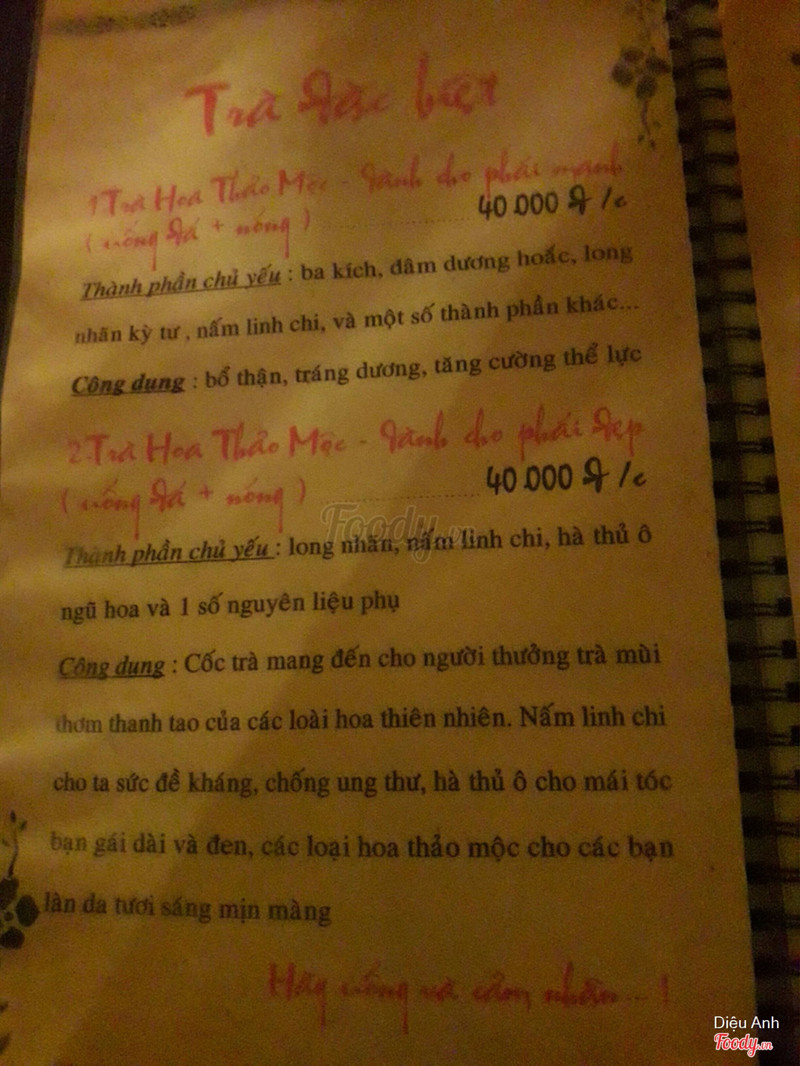 Trà đặc biệt
1.Trà Hoa Thảo Mộc - dành cho phái mạnh
( uống đá + nóng ) .................... 40.000 đ /c
Thành phần chủ yếu : ba kích, dâm dương hoắc, long
nhãn kỳ tư , nấm linh chi, và một số thành phần khác...
Công dung : bổ thận, tráng dương, tăng cường thể lực
2.Trà Hoa Thảo Mộc - dành cho phái đẹp
( uống đá + nóng ) .................... 40.000 đ /c
Thành phần chủ yếu : long nhãn, nấm linh chi, hà thủ ô
ngũ hoa và 1 số nguyên liệu phụ
Công dung : Cốc trà mang đến cho người thưởng trà mùi
thơm thanh tao của các loài hoa thiên nhiên. Nấm linh chi
cho ta sức đề kháng, chống ung thư, hà thủ ô cho mái tóc
bạn gái dài và đen, các loại hoa thảo mộc cho các bạn
làn da tươi sáng mịn màng
Hãy uống và cảm nhận... !
Foody.vn
Diệu Anh
Foody.vn